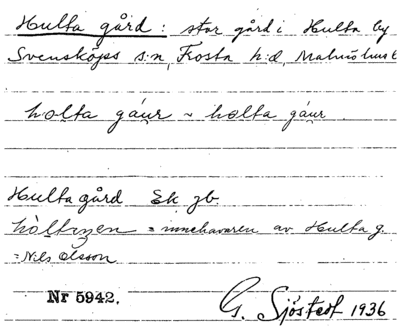 Hulta gård: stor gård i Hulta by
Svensköps s:n, Frosta h:d, Malmöhus l
holta gáur ~ hølta gáur
Hulta gård Ek. jb
hòltɪʒen = innehavaren av Hulta g.
= Nils Olsson
Nr 5942. G. Sjöstedt 1936